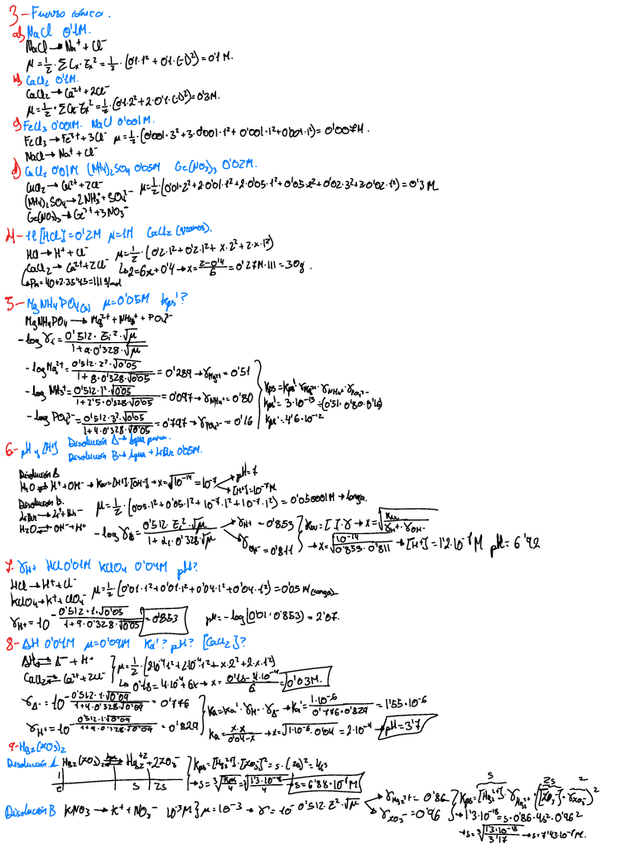 3- Fuerza iónica.
a) NaCl 0'1M.
NaCl → Na⁺ + Cl⁻
μ = 1/2 · Σ Cx · Zx² = 1/2 · (0'1 · 1² + 0'1 · (-1)²) = 0'1 M.
b) CaCl₂ 0'1M.
CaCl₂ → Ca²⁺ + 2Cl⁻
μ = 1/2 · Σ Cx · Zx² = 1/2 (0'1 · 2² + 2 · 0'1 · (-1)²) = 0'3M.
c) FeCl₃ 0'001M. NaCl 0'001M.
FeCl₃ → Fe³⁺ + 3Cl⁻ μ = 1/2 · (0'001 · 3² + 3 · 0'001 · 1² + 0'001 · 1² + 0'001 · 1²) = 0'007M.
NaCl → Na⁺ + Cl⁻
d) CuCl₂ 0'01M (NH₄)₂SO₄ 0'05M Gc(NO₃)₃ 0'02M.
CuCl₂ → Cu²⁺ + 2Cl⁻ μ = 1/2 (0'01 · 2² + 2 · 0'01 · 1² + 2 · 0'05 · 1² + 0'05 · 2² + 0'02 · 3² + 3 · 0'02 · 1²) = 0'3 M
(NH₄)₂SO₄ → 2NH₄⁺ + SO₄²⁻
Gc(NO₃)₃ → Gc³⁺ + 3NO₃⁻
4- 1l [HCl] = 0'2M μ = 1M CaCl₂ (gramos).
HCl → H⁺ + Cl⁻ μ = 1/2 · (0'2 · 1² + 0'2 · 1² + x · 2² + 2 · x · 1²)
CaCl₂ → Ca²⁺ + 2Cl⁻ ↳ 2 = 6x + 0'4 → x = (2 - 0'4)/6 = 0'27M · 111 = 30g.
↳ Pm = 40 + 2 · 35'45 = 111 g/mol
5- MgNH₄PO₄(s) μ = 0'05M Kps'?
MgNH₄PO₄ → Mg²⁺ + NH₄⁺ + PO₄³⁻
-log γi = (0'512 · Zi² · √μ)/(1 + a · 0'328 · √μ)
-log Mg²⁺ = (0'512 · 2² · √0'05)/(1 + 8 · 0'328 · √0'05) = 0'289 → γMg²⁺ = 0'51
-log NH₄⁺ = (0'512 · 1² · √0'05)/(1 + 2'5 · 0'328 · √0'05) = 0'097 → γNH₄⁺ = 0'80
-log PO₄³⁻ = (0'512 · 3² · √0'05)/(1 + 4 · 0'328 · √0'05) = 0'797 → γPO₄³⁻ = 0'16
Kps = Kps' · γMg²⁺ · γNH₄⁺ · γPO₄³⁻
Kps' = 3 · 10⁻¹³ ÷ (0'51 · 0'80 · 0'16)
Kps' = 4'6 · 10⁻¹²
6- pH y [H⁺] Disolución A → Agua pura.
Disolución B → Agua + LiBr 0'05M.
Disolución A
H₂O ⇌ H⁺ + OH⁻ → Kw = [H⁺] · [OH⁻] → x = √10⁻¹⁴ = 10⁻⁷ → pH = 7
→ [H⁺] = 10⁻⁷ M
Disolución B.
LiBr → Li⁺ + Br⁻ μ = 1/2 · (0'05 · 1² + 0'05 · 1² + 10⁻⁷ · 1² + 10⁻⁷ · 1²) = 0'050001M →
H₂O ⇌ OH⁻ + H⁺ -log γ = (0'512 · Zi² · √μ)/(1 + a · 0'328 · √μ) → γH⁺ = 0'853
→ γOH⁻ = 0'811
Kw = [ ] · γ → x = √(Kw/(γH⁺ · γOH⁻))
→ x = √(10⁻¹⁴/(0'853 · 0'811)) → [H⁺] = 1'2 · 10⁻⁷ M pH = 6'92
7- γH⁺ HCl 0'01M KClO₄ 0'04M pH?
HCl → H⁺ + Cl⁻
KClO₄ → K⁺ + ClO₄⁻ μ = 1/2 · (0'01 · 1² + 0'01 · 1² + 0'04 · 1² + 0'04 · 1²) = 0'05M
γH⁺ = 10^-(0'512 · 1 · √0'05)/(1 + 9 · 0'328 · √0'05) = 0'853 pH = -log(0'01 · 0'853) = 2'07.
8- AH 0'04M μ = 0'09M Ka'? pH? [CaCl₂]?
AH ⇌ A⁻ + H⁺
CaCl₂ ⇌ Ca²⁺ + 2Cl⁻ μ = 1/2 · (2·10⁻⁴ · 1² + 2·10⁻⁴ · 1² + x · 2² + 2 · x · 1²)
↳ 0'18 = 4 · 10⁻⁴ + 6x → x = (0'18 - 4 · 10⁻⁴)/6 = 0'03M.
γA⁻ = 10^-(0'512 · 1 · √0'09)/(1 + 4 · 0'328 · √0'09) = 0'776
γH⁺ = 10^-(0'512 · 1 · √0'09)/(1 + 9 · 0'328 · √0'09) = 0'829
Ka = Ka' · γH⁺ · γA⁻ → Ka' = 1 · 10⁻⁶/(0'776 · 0'829) = 1'55 · 10⁻⁶
Ka = (x · x)/(0'04 - x) → x = √(1 · 10⁻⁶ · 0'04) = 2 · 10⁻⁴ → pH = 3'7
9- Hg₂(XO₃)₂
Disolución A Hg₂(XO₃)₂ ⇌ Hg₂⁺² + 2XO₃⁻
s 2s
Kps = [Hg₂²⁺] · [XO₃⁻]² = s · (2s)² = 4s³
→ s = ∛(Kps/4) = ∛(1'3 · 10⁻¹⁸/4) → s = 6'88 · 10⁻⁷ M
Disolución B KNO₃ → K⁺ + NO₃⁻ 10⁻³ M } μ = 10⁻³ → γ = 10^-0'512 · Z² · √μ → γHg₂²⁺ = 0'86
→ γXO₃⁻ = 0'96
Kps = [Hg₂²⁺] · γHg₂²⁺ · ([XO₃⁻] · γXO₃⁻)²
→ 1'3 · 10⁻¹⁸ = s · 0'86 · 4s² · 0'96²
→ s = ∛(1'3 · 10⁻¹⁸/3'17) → s = 7'43 · 10⁻⁷ M.